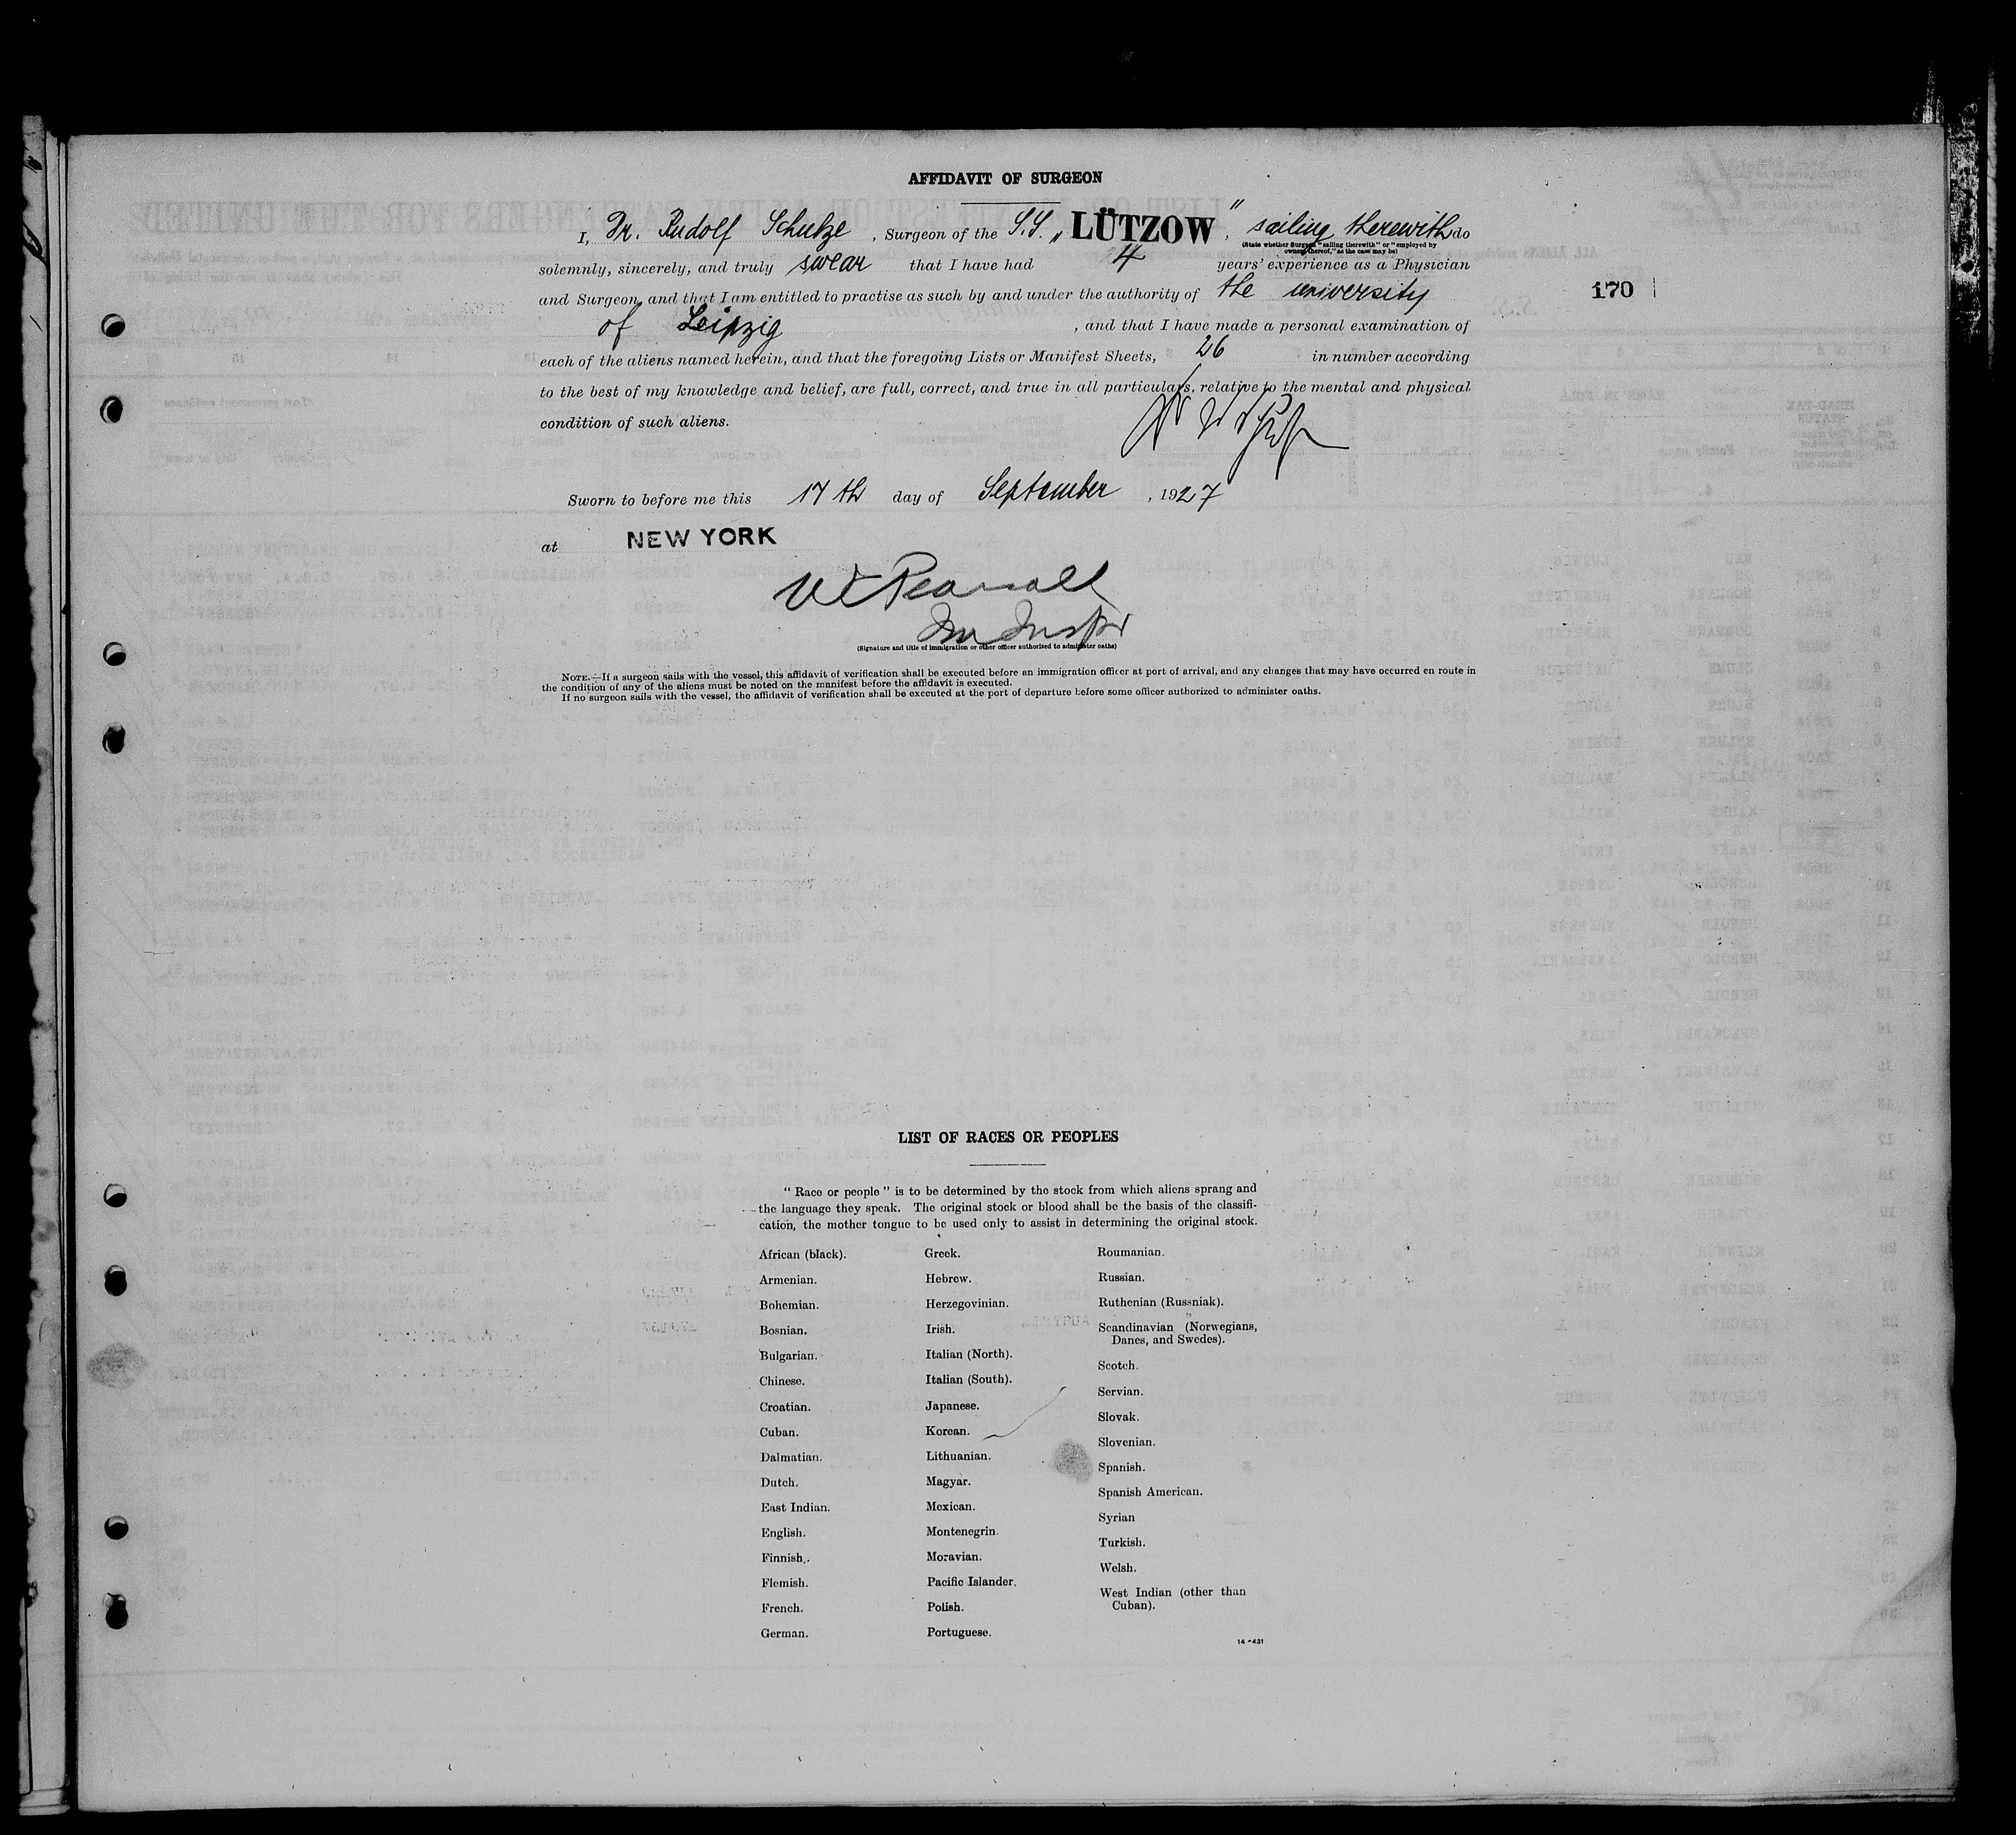 AFFIDAVIT OF SURGEON
I, Dr. Rudolf Schulze, Surgeon of the S.S. „LÜTZOW", sailing therewith do
(State whether Surgeon "sailing therewith" or "employed by owners thereof," as the case may be)
solemnly, sincerely, and truly swear that I have had 4 years' experience as a Physician
and Surgeon, and that I am entitled to practise as such by and under the authority of the university
170
of Leipzig, and that I have made a personal examination of
each of the aliens named herein, and that the foregoing Lists or Manifest Sheets, 26 in number according
to the best of my knowledge and belief, are full, correct, and true in all particulars, relative to the mental and physical
condition of such aliens.
Sworn to before me this 17th day of September, 1927
at NEW YORK
(Signature and title of immigration or other officer authorized to administer oaths)
NOTE.—If a surgeon sails with the vessel, this affidavit of verification shall be executed before an immigration officer at port of arrival, and any changes that may have occurred en route in
the condition of any of the aliens must be noted on the manifest before the affidavit is executed.
If no surgeon sails with the vessel, the affidavit of verification shall be executed at the port of departure before some officer authorized to administer oaths.
LIST OF RACES OR PEOPLES
" Race or people " is to be determined by the stock from which aliens sprang and
the language they speak. The original stock or blood shall be the basis of the classifi-
cation, the mother tongue to be used only to assist in determining the original stock.
African (black).
Armenian.
Bohemian.
Bosnian.
Bulgarian.
Chinese.
Croatian.
Cuban.
Dalmatian.
Dutch.
East Indian.
English.
Finnish.
Flemish.
French.
German.
Greek.
Hebrew.
Herzegovinian.
Irish.
Italian (North).
Italian (South).
Japanese.
Korean.
Lithuanian.
Magyar.
Mexican.
Montenegrin.
Moravian.
Pacific Islander.
Polish.
Portuguese.
Roumanian.
Russian.
Ruthenian (Russniak).
Scandinavian (Norwegians,
Danes, and Swedes).
Scotch.
Servian.
Slovak.
Slovenian.
Spanish.
Spanish American.
Syrian
Turkish.
Welsh.
West Indian (other than
Cuban).
14—431